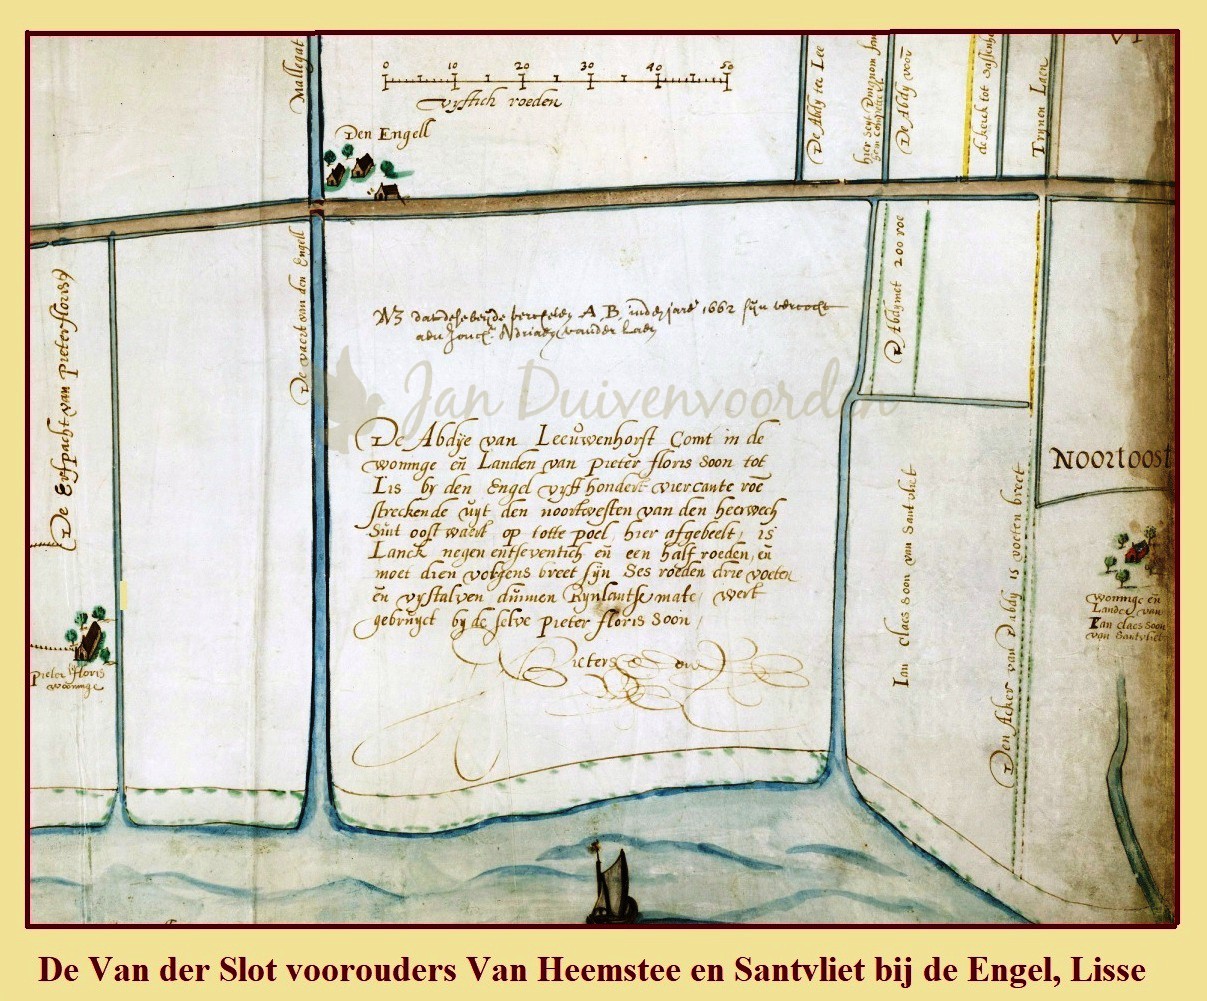 Mallegat
0 10 20 30 40 50
vyftich roeden
Den Engell
De Abdy te Lee
De Abdy voor
de kerck tot Sassenh
Trynen Laen
De Erfpacht van Pieter floris
De vaert van den Engell
De Abdy met 200 roe
A B inden jare 1662 sijn vercocht
aen Jonckr. Adriaen vander Laen
Jan Duivenvoorden
De Abdye van Leeuwenhorst Comt in de
wooninge en Landen van Pieter floris Soon tot
Lis by den Engel vyff hondert viercante roe
streckende uyt den noortwesten van den heerwech
Suit oost waert, op totte poel, hier afgebeelt, is
Lanck negen entseventich en een half roeden, en
moet dien volgens breet sijn Ses roeden drie voeten
en vystalven duimen Rynlantse mate, wert
gebruyct by de selve Pieter floris Soon,
Noortoost
Ian Claes Soon van Santvliet
Den Acker van Dabdy 15 voeten breet
wooninge en
Lande van
Ian Claes Soon
van Santvliet
Pieter floris
wooninge
De Van der Slot voorouders Van Heemstee en Santvliet bij de Engel, Lisse